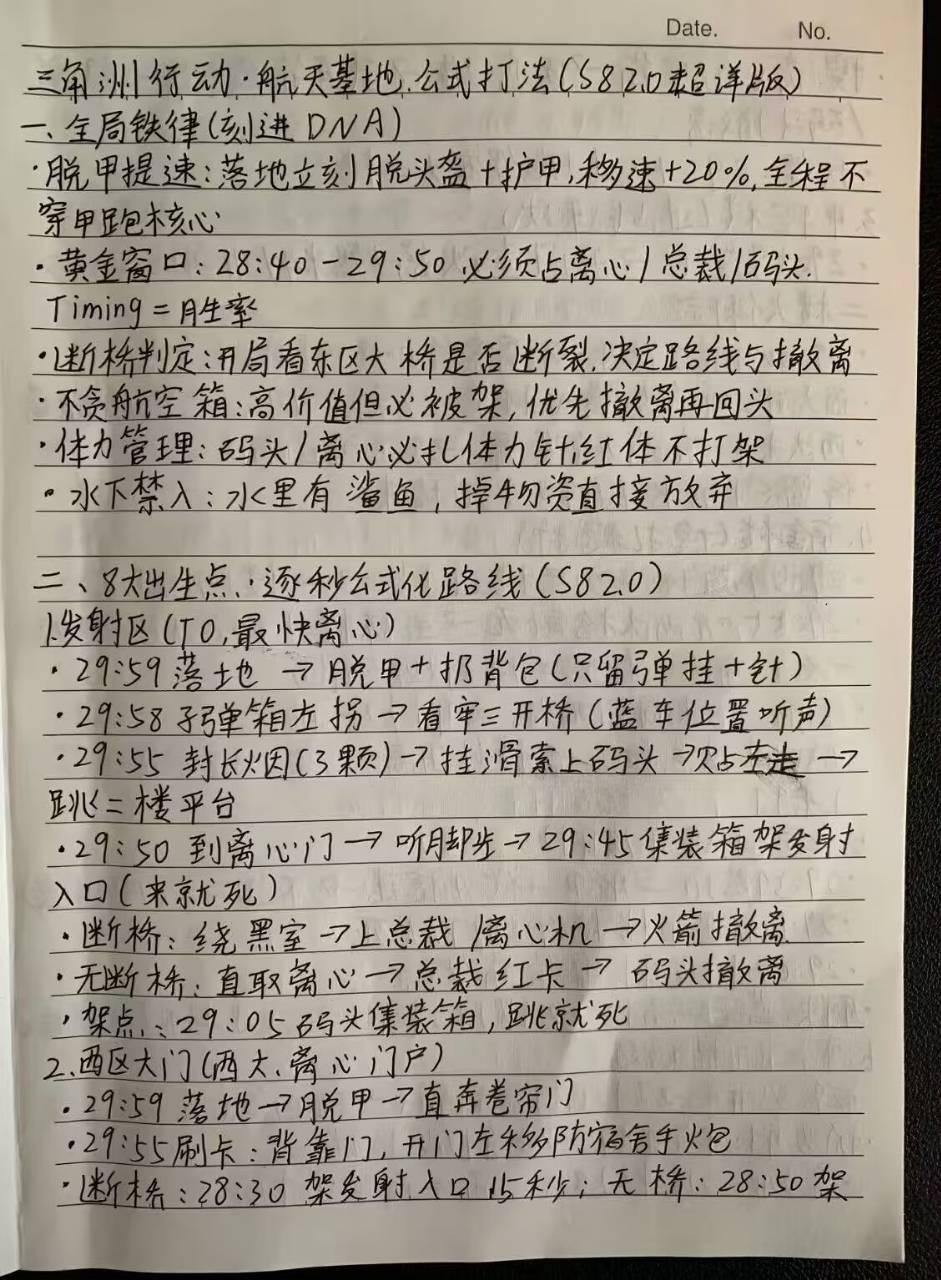 Date. No.
三角洲行动·航天基地.公式打法(S8 2.0超详版)
一、全局铁律(刻进DNA)
·脱甲提速:落地立刻脱头盔+护甲,移速+20%,全程不
穿甲跑核心
·黄金窗口:28:40-29:50必须占离心/总裁/码头.
Timing=胜率
·断桥判定:开局看东区大桥是否断裂.决定路线与撤离
·不贪航空箱:高价值但必被架,优先撤离再回头
·体力管理:码头/离心必扎体力针,红体不打架
·水下禁入:水里有鲨鱼,掉物资直接放弃
二、8大出生点·逐秒公式化路线(S8 2.0)
1.发射区(T0,最快离心)
·29:59落地→脱甲+扔背包(只留弹挂+针)
·29:58子弹箱左拐→看牢三开桥(蓝车位置听声)
·29:55封长烟(3颗)→挂滑索上码头→贴左走→
跳二楼平台
·29:50到离心门→听脚步→29:45集装箱架发射
入口(来就死)
·断桥:绕黑室→上总裁/离心机→火箭撤离
·无断桥:直取离心→总裁红卡→码头撤离
·架点:29:05码头集装箱,跳就死
2.西区大门(西大.离心门户)
·29:59落地→脱甲→直奔卷帘门
·29:55刷卡:背靠门,开门左移防宿舍手炮
·断桥:28:30架发射入口15秒;无桥:28:50架